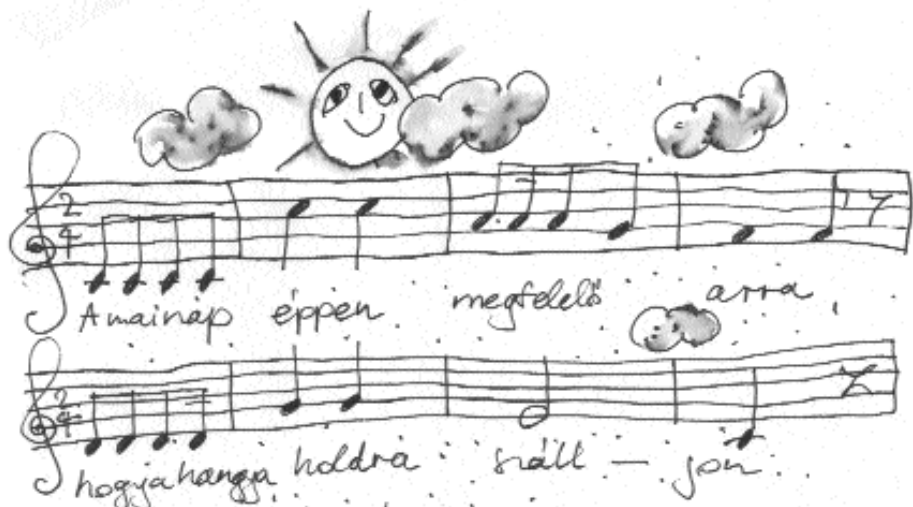 A mainap éppen megfelelő arra
hogyahangja holdra száll – jon